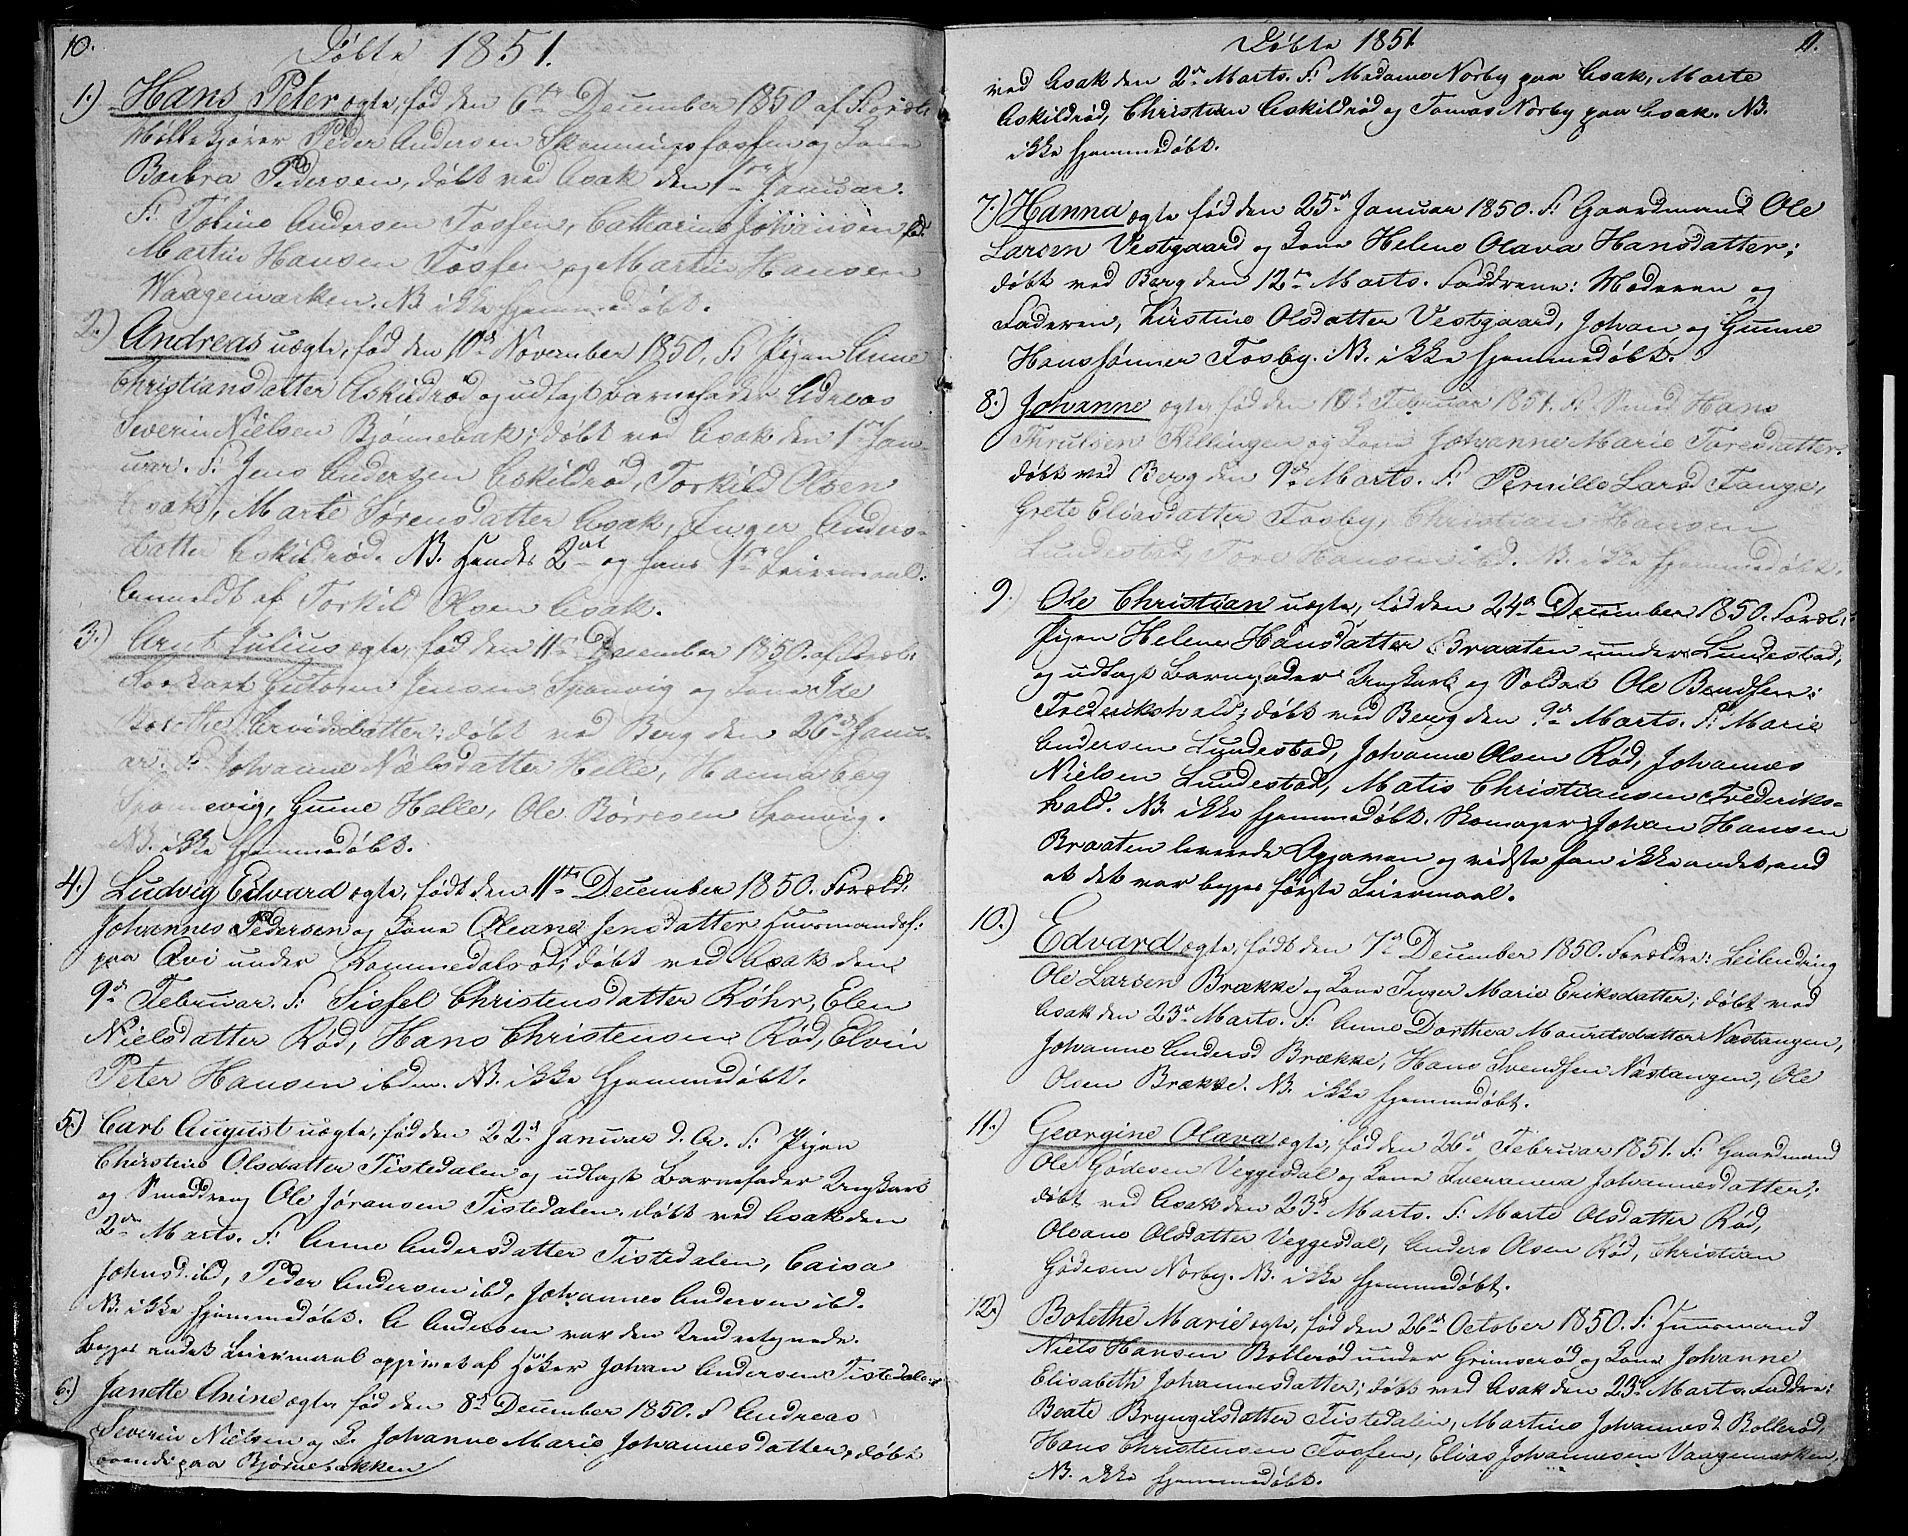 10.
Döbte 1851.
1.) Hans Peter ægte, fød den 6te December 1850 af Foræl:
Mölle Peder Andersen Skonningsfossen og Kone
Barbra Pedersen, döbt ved Asak den 1ste Januar.
F: Andersen Fossen, Catharine Johansen ibd.
Martin Hansen Fossen og Martin Hansen
Waagemarken. NB. ikke hjemmedöbt.
2.) Andreas uægte, fød den 10de November 1850, F: Pigen Anne
Christiansdatter Askildrød og udlagt Barnefader Adreas
Severin Nielsen Bjønnebak; döbt ved Asak den 1ste Jan-
uar. F: Jens Andersen Askildrød, Torkild Olsen
Asak, Marte Sørensdatter Asak, Inger Anders-
datter Askildrød. NB. Hendes 2det og hans 1ste Leiermaal.
Anmeldt af Torkild Olsen Asak.
3.) Arnt Julius ægte, fød den 11te December 1850. af Foræl:
Jensen Sponvig og Kone
Dorthe Arvidsdatter; döbt ved Berg den 26de Janu-
ar. F: Johanne Nielsdatter Helle, Hanna
Sponvig, Gunne Helle, Ole Börresen Sponvig.
NB. ikke hjemmedöbt.
4.) Ludvig Edvard ægte, født den 11te December 1850. Foræld:
Johannes Pedersen og Kone Oleane Jensdatter Huusmandsf:
paa under döbt ved Asak den
9de Februar. F: Sissel Christensdatter Röhr, Elen
Nielsdatter Röd, Hans Christensen Röd, Elvin
Peter Hansen ibdm. NB. ikke hjemmedöbt.
5.) Carl August uægte, fød den 22de Januar d. A. F: Pigen
Christine Olsdatter Tistedalen og udlagte Barnefader Ungkarl
og Smeddreng Ole Jöransen Tistedalen. döbt ved Asak den
2den Marts. F: Anne Andersdatter Tistedalen, Caisa
Johnsd. ibd, Peder Andersen ibd, Johannes Andersen ibd.
NB. ikke hjemmedöbt. A Andersen var den Undertegnede.
Begges andet Leiermaal opgivet af Höker Johan Andersen Tistedalen
6.) Janette Anine ægte fød den 8de December 1850. F Andreas
Severin Nielsen og K. Johanne Marie Johannesdatter, döbt
boende paa Bjørnebakken
11.
Döbte 1851
ved Asak den 2den Marts. F: Madame Norby paa Asak, Marte
Askildrød, Christian Askildrød og Tomas Norby paa Asak. NB.
ikke hjemmedöbt.
7.) Hanna ægte fød den 25de Januar 1850. F: Gaardmand Ole
Larsen Vestgaard og Kone Helene Olava Hansdatter;
döbt ved Berg den 12te Marts. Faddrene: Moderen og
Faderen, Kirstine Olsdatter Vestgaard, Johan og Gunne
Hanssönner Fosby. NB. ikke hjemmedöbt.
8.) Johanne ægte, fød den 10de Februar 1851. F. Smed Hans
Thrulsen Killingen og Kone Johanne Marie Toresdatter.
döbt ved Berg den 9de Marts. F: Pernille Larsd Tange,
Grete Eliasdatter Fosby, Christian Hansen
Lundestad, Tore Hansen ibd. NB. ikke hjemmedöbt.
9.) Ole Christian uægte, fød den 24de December 1850. Foræl:
Pigen Helene Hansdatter Braaten under Lundestad;
og udlagt Barnefader Ungkarl og Soldat Ole Bendsen
Frederikshald; döbt ved Berg den 9de Marts. F: Marie
Andersen Lundestad, Johanne Olsen Röd, Johannes
Nielsen Lundestad, Matis Christiansen Frederiks-
hald. NB. ikke hjemmedöbt. Skomager Johan Hansen
Braaten leverede Opgaven og vidste han ikke andet, end
at det var begges förste Leiermaal.
10.) Edvard ægte, født den 7de December 1850. Forældre: Leilending
Ole Larsen Brække og Kone Inger Marie Eriksdatter; döbt ved
Asak den 23de Marts. F: Anne Dorthea Mauritsdatter Næstangen,
Johanne Andersd Brække, Hans Svendsen Næstangen, Ole
Olsen Brække. NB. ikke hjemmedöbt.
11.) Georgine Olava ægte, fød den 26de Februar 1851. F: Gaardmand
Ole Gödesen Veggesdal og Kone Iveranna Johannesdatter;
döbt ved Asak den 23de Marts. F: Marte Olsdatter Röd,
Oleane Olsdatter Veggesdal, Anders Olsen Röd, Christian
Gödesen Norby. NB. ikke hjemmedöbt.
12.) Bolethe Marie ægte, fød den 26de October 1850. F: Huusmand
Niels Hansen Bollerød under Grimserød og Kone Johanne
Elisabeth Johannesdatter; döbt ved Asak den 23de Marts. Faddre:
Beate Bryngelsdatter Tistedalen, Martine Johannesd. Bollerød,
Hans Christensen Fossen, Elias Johannesen Vaagemarken,
NB. ikke hjemmedöbt.